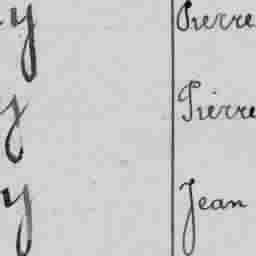 y Pierre
y Pierre
y Jean